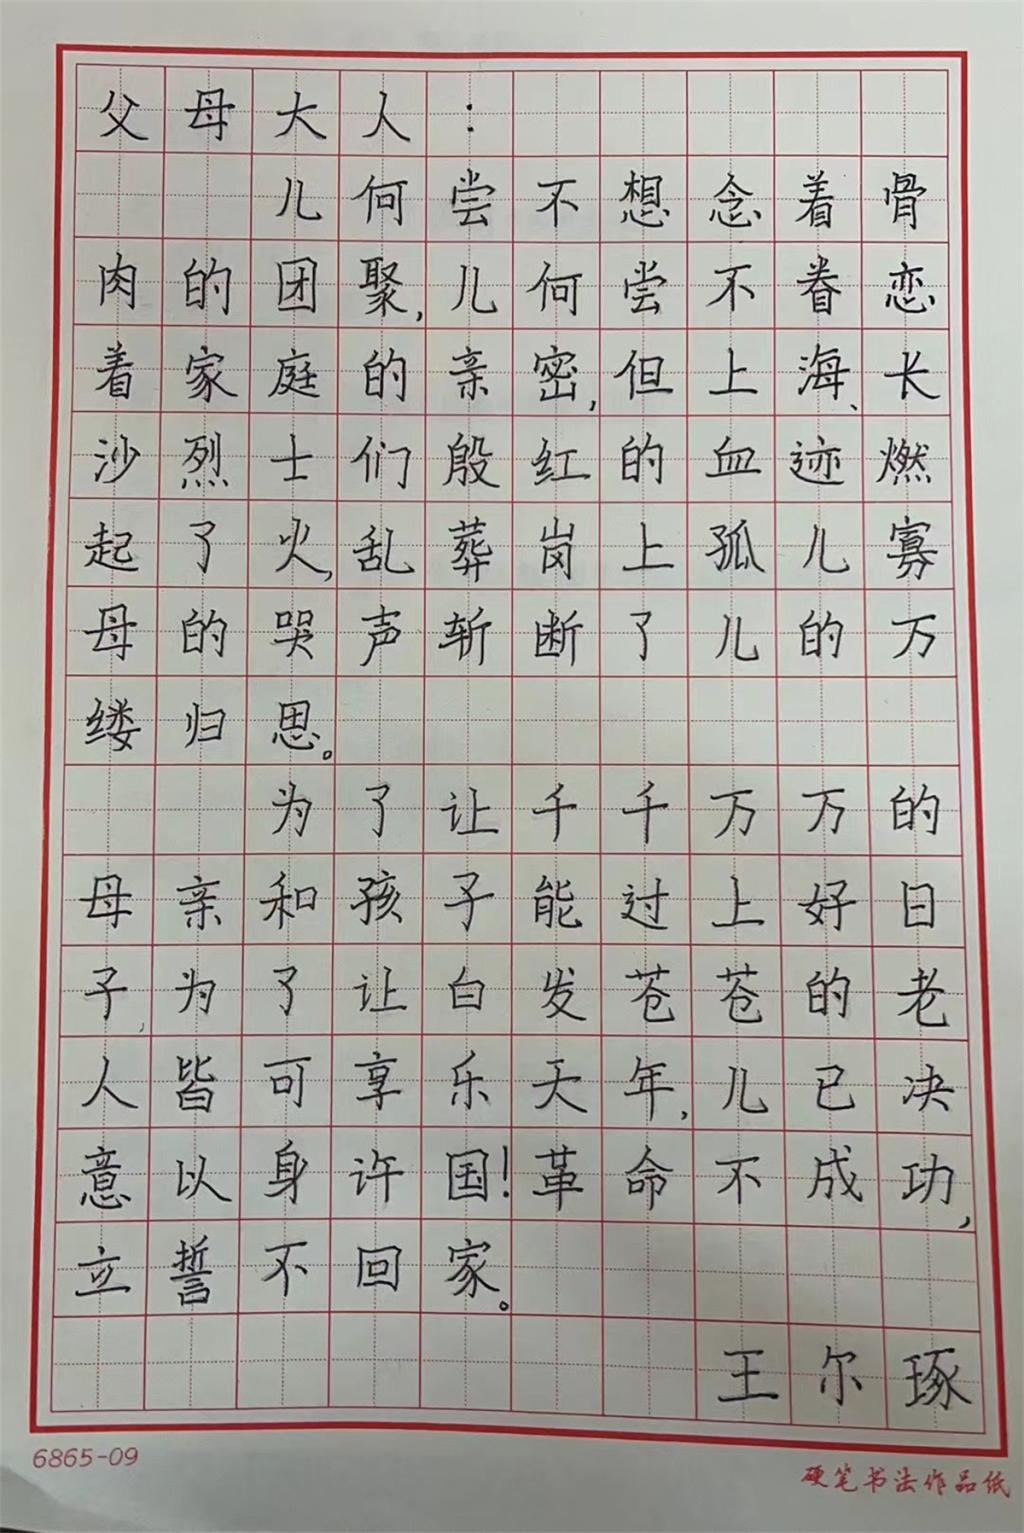 父母大人：
儿何尝不想念着骨
肉的团聚,儿何尝不眷恋
着家庭的亲密,但上海、长
沙烈士们殷红的血迹燃
起了火,乱葬岗上孤儿寡
母的哭声斩断了儿的万
缕归思。
为了让千千万万的
母亲和孩子能过上好日
子,为了让白发苍苍的老
人皆可享乐天年,儿已决
意以身许国!革命不成功,
立誓不回家。
王尔琢
6865-09
硬笔书法作品纸